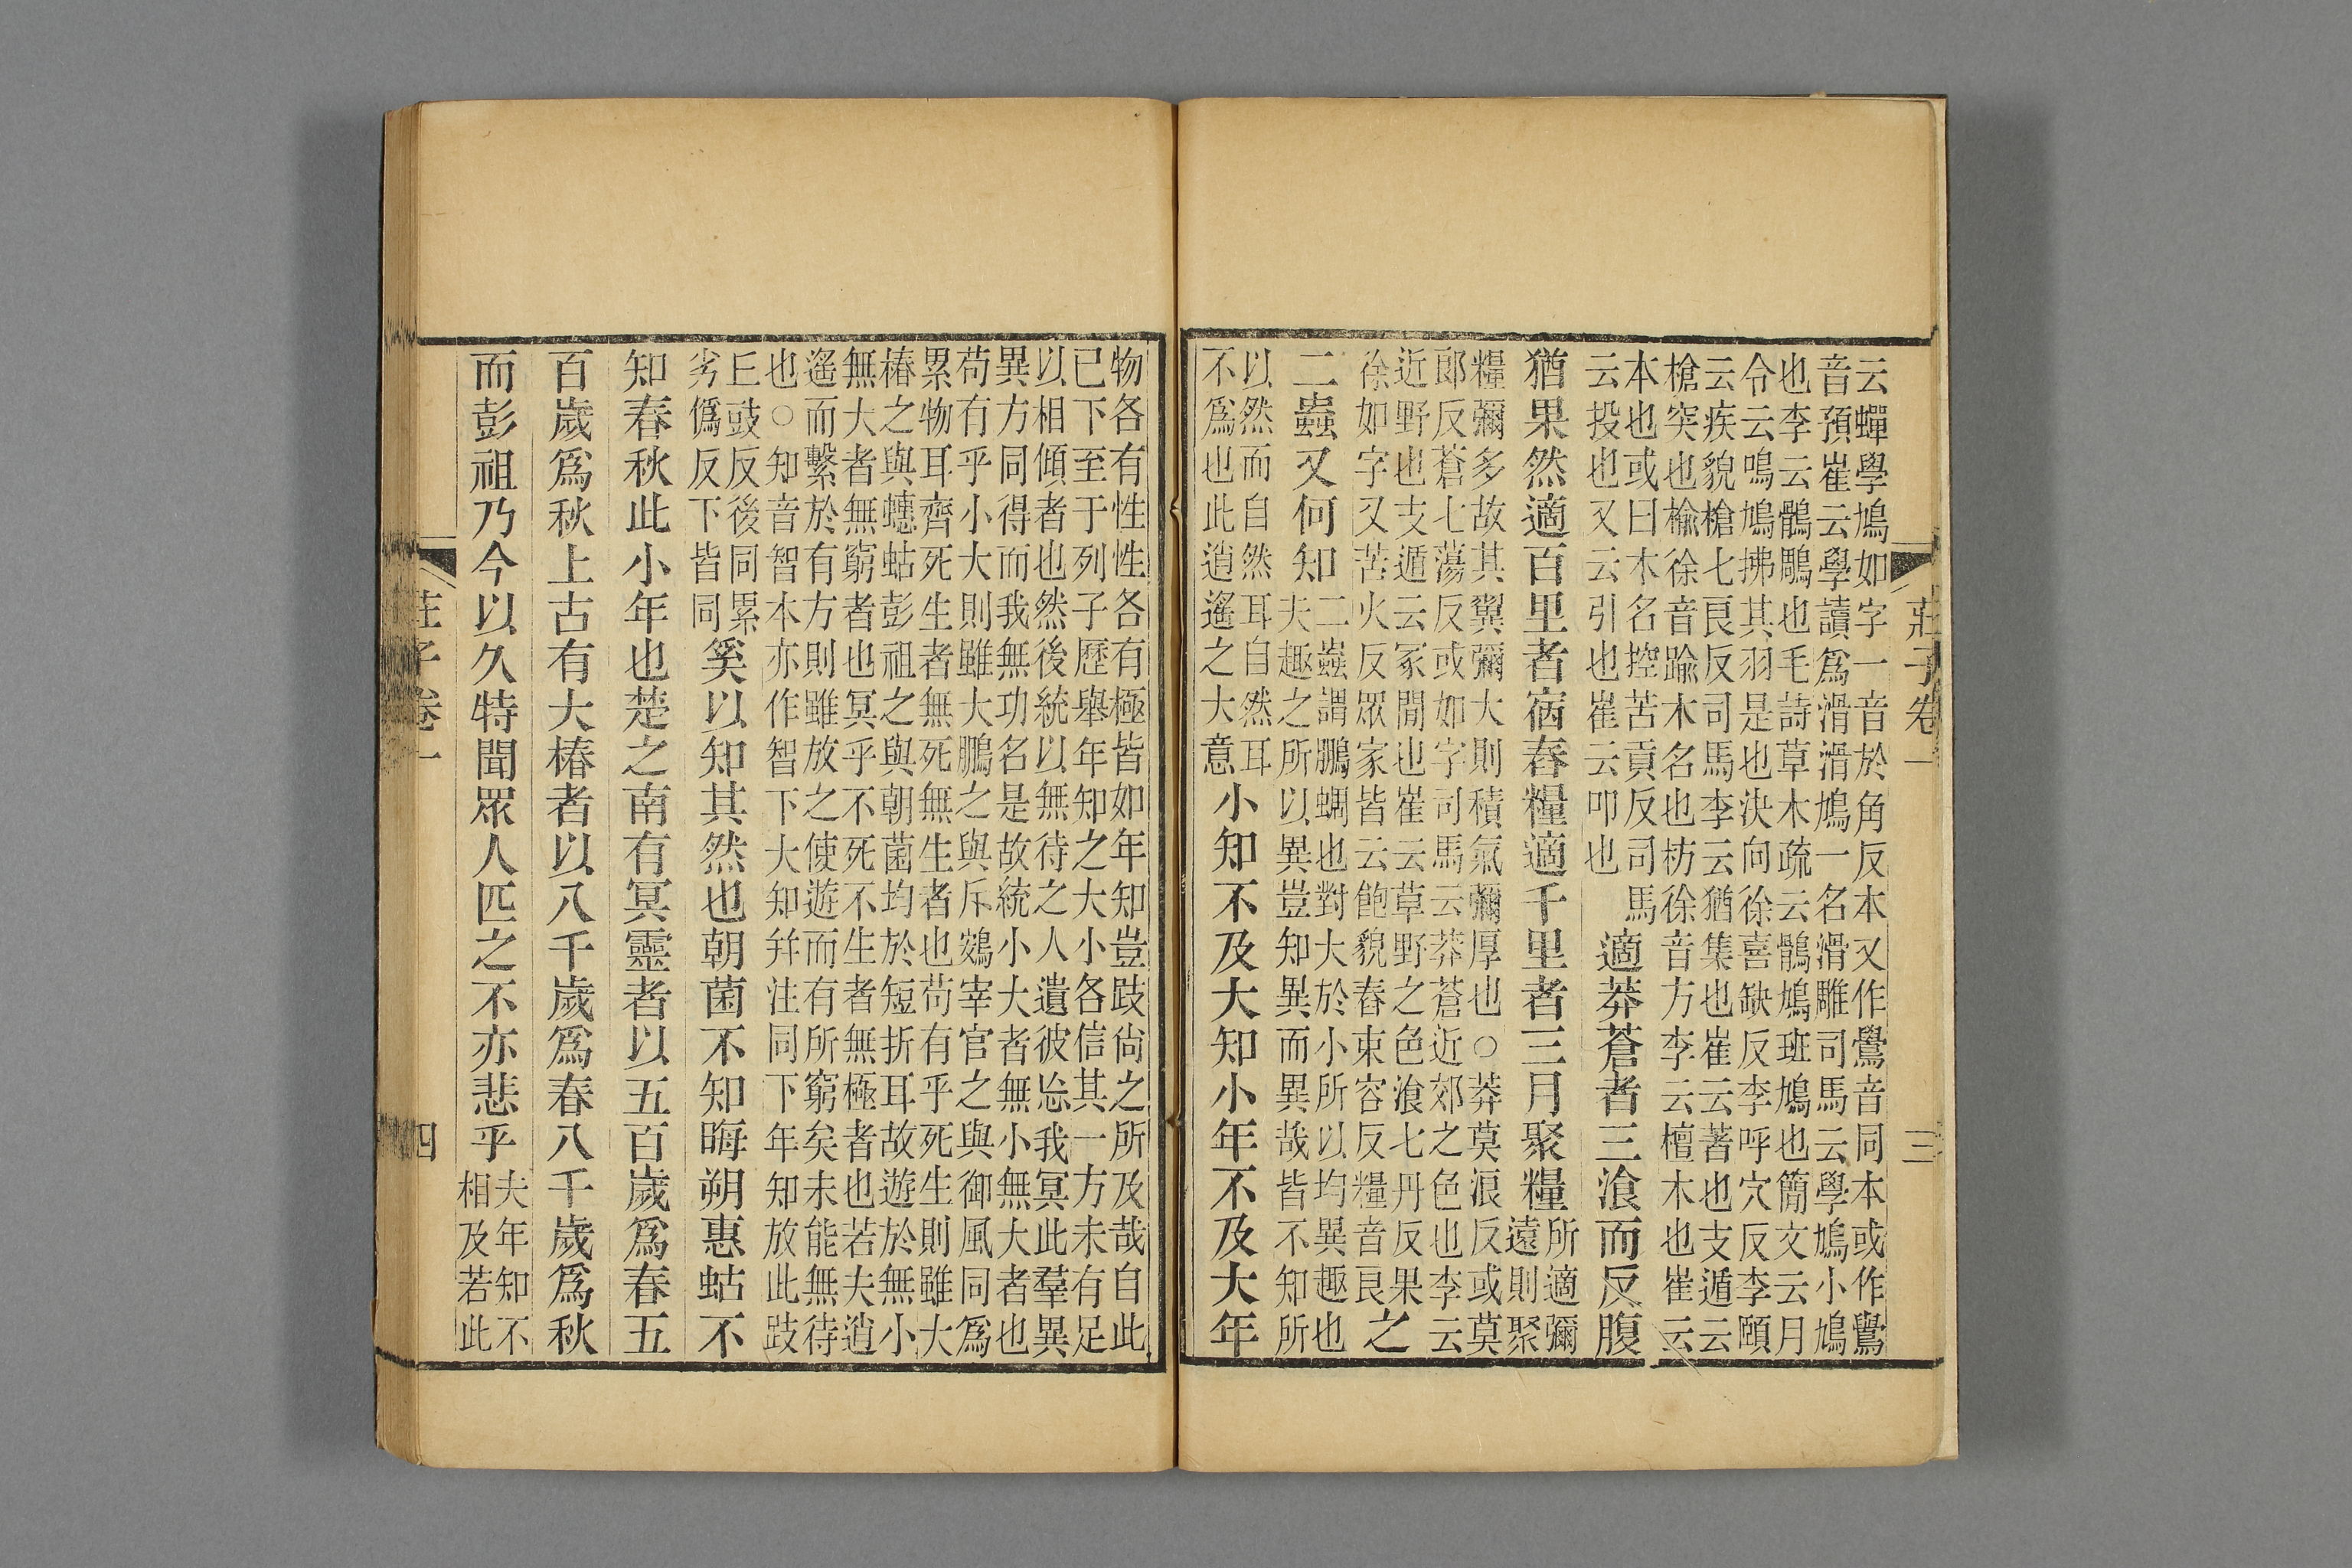 莊子卷一 三
云蟬學鳩如字一音於角反本又作鷽音同本或作鸒
音預崔云學讀爲滑滑鳩一名滑雕司馬云學鳩小鳩
也李云鶻鵰也毛詩草木疏云鶻鳩班鳩也簡文云月
令云鳴鳩拂其羽是也決向徐喜缺反李呼穴反李頤
云疾貌槍七良反司馬李云猶集也崔云著也支遁云
槍突也楡徐音踰木名也枋徐音方李云檀木也崔云
本也或曰木名控苦貢反司馬
云投也又云引也崔云叩也
適莽蒼者三飡而反腹
猶果然適百里者宿舂糧適千里者三月聚糧
所適彌
遠則聚
糧彌多故其翼彌大則積氣彌厚也○莽莫浪反或莫
郎反蒼七蕩反或如字司馬云莽蒼近郊之色也李云
近野也支遁云冢閒也崔云草野之色飡七丹反果
徐如字又苦火反眾家皆云飽貌舂束容反糧音良
之
二蟲又何知
二蟲謂鵬蜩也對大於小所以均異趣也
夫趣之所以異豈知異而異哉皆不知所
以然而自然耳自然耳
不爲也此逍遙之大意
小知不及大知小年不及大年
物各有性性各有極皆如年知豈跂尙之所及哉自此
已下至于列子歷舉年知之大小各信其一方未有足
以相傾者也然後統以無待之人遺彼忘我冥此羣異
異方同得而我無功名是故統小大者無小無大者也
苟有乎小大則雖大鵬之與斥鴳宰官之與御風同爲
累物耳齊死生者無死無生者也苟有乎死生則雖大
椿之與蟪蛄彭祖之與朝菌均於短折耳故遊於無小
無大者無窮者也冥乎不死不生者無極者也若夫逍
遙而繫於有方則雖放之使遊而有所窮矣未能無待
也○知音智本亦作智下大知幷注同下年知放此跂
丘豉反後同累
劣僞反下皆同
奚以知其然也朝菌不知晦朔惠蛄不
知春秋此小年也楚之南有冥靈者以五百歲爲春五
百歲爲秋上古有大椿者以八千歲爲春八千歲爲秋
而彭祖乃今以久特聞眾人匹之不亦悲乎
夫年知不
相及若此
莊子卷一 四